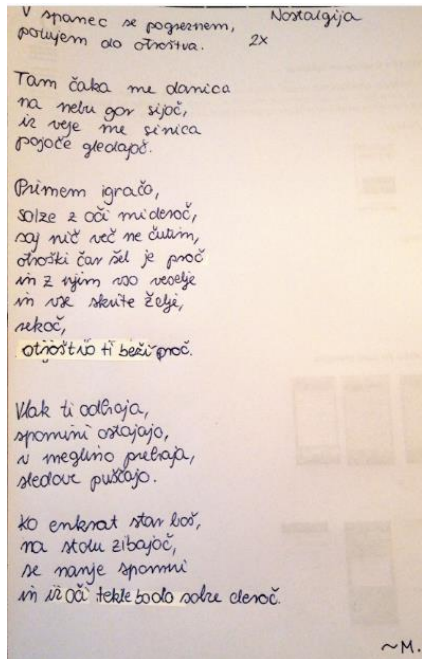 Nostalgija
V spanec se pogreznem,
potujem do otroštva. 2x
Tam čaka me danica
na nebu gor sijoč,
iz veje me sinica
pojoče gledajoč.
Primem igračo,
solze z oči mi deroč,
saj nič več ne čutim,
otroški čar šel je proč
in z njim vso veselje
in vse skrite želje,
rekoč,
otroštvo ti beži proč.
Vlak ti odhaja,
spomini ostajajo,
v meglino prehaja,
sledove puščajo.
Ko enkrat star boš,
na stolu zibajoč,
se nanje spomni
in iz oči tekle bodo solze deroč.
~M.